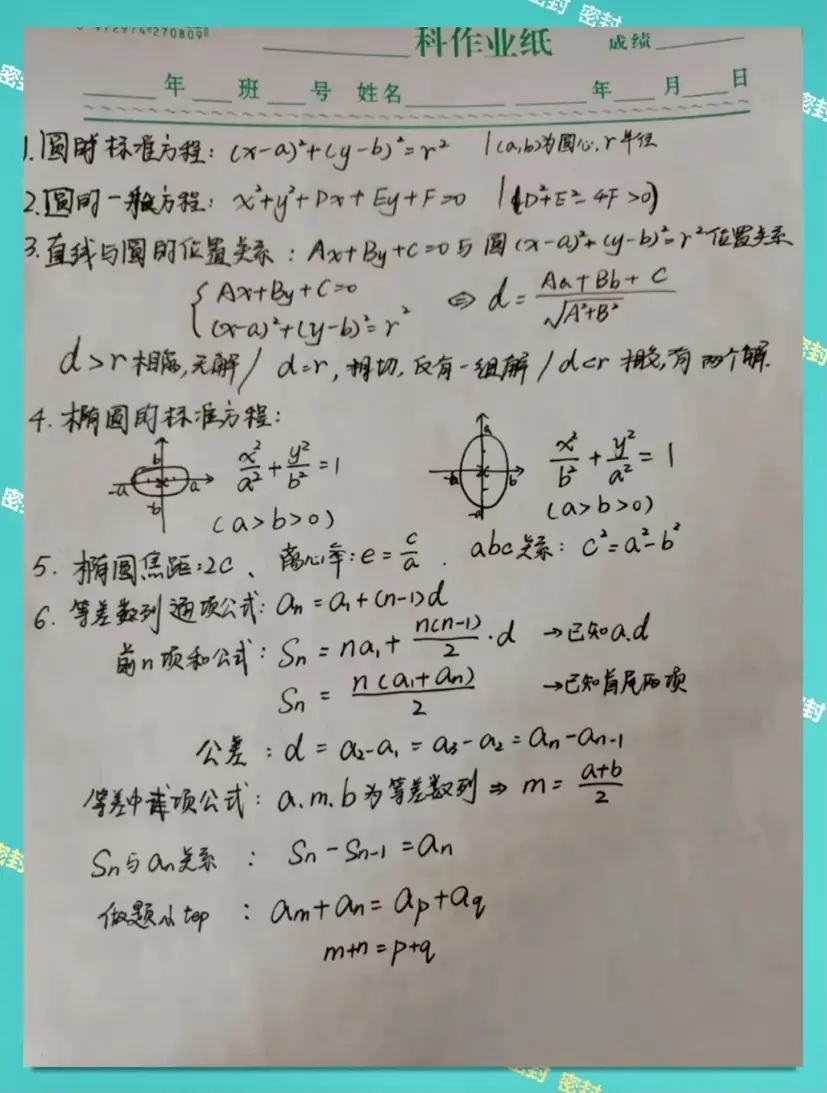 972974270809
科作业纸 成绩
年 班 号 姓名 年 月 日
1.圆的标准方程：(x-a)²+(y-b)²=r² |(a,b)为圆心,r半径
2.圆的一般方程：x²+y²+Dx+Ey+F=0 |(D²+E²-4F>0)
3.直线与圆的位置关系：Ax+By+C=0与圆(x-a)²+(y-b)²=r²位置关系
{Ax+By+C=0
(x-a)²+(y-b)²=r² ⇔ d=\frac{Aa+Bb+C}{\sqrt{A²+B²}}
d>r相离,无解/ d=r,相切,仅有一组解/d<r相交,有两个解.
4.椭圆的标准方程：
b -a a -b \frac{x²}{a²}+\frac{y²}{b²}=1 a -b b -a \frac{x²}{b²}+\frac{y²}{a²}=1
(a>b>0) (a>b>0)
5.椭圆焦距:2c、离心率:e=\frac{c}{a}.abc关系：c²=a²-b²
6.等差数列通项公式：aₙ=a₁+(n-1)d
前n项和公式：Sₙ=na₁+\frac{n(n-1)}{2}·d →已知a.d
Sₙ=\frac{n(a₁+aₙ)}{2} →已知首尾两项
公差：d=a₂-a₁=a₃-a₂=aₙ-aₙ₋₁
等差中项公式：a.m.b为等差数列⇒m=\frac{a+b}{2}
Sₙ与aₙ关系：Sₙ-Sₙ₋₁=aₙ
做题小top：aₘ+aₙ=aₚ+a_q
m+n=p+q
密封 密封
密封
密封
密封
密封
密封
密封
密封
密封
密封 密封